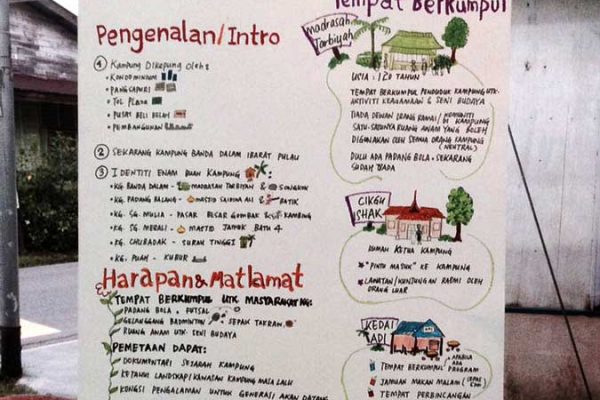 Pengenalan/Intro
1 KAMPUNG DIKEPUNG OLEH:
• KONDOMINIUM
• PANGSAPURI
• TOL PLAZA
• PUSAT BELI BELAH
• PEMBANGUNAN
2 SEKARANG KAMPUNG BANDA DALAM IBARAT PULAU
3 IDENTITI ENAM BUAH KAMPUNG :
• KG. BANDA DALAM - MADRASAH TARBIYAH & SONGKOK
• KG. PADANG BALANG - MASJID SAIDINA ALI & BATIK
• KG. SG. MULIA - PASAR BESAR GOMBAK & KAMBING
• KG. SG. MERALI - MASJID JAMEK BATU 4
• KG. CHUBADAK - SURAU TINGGI
• KG. PUAH - KUBUR
Harapan & Matlamat
TEMPAT BERKUMPUL UTK MASYARAKAT
PADANG BOLA, FUTSAL
GELANGGANG BADMINTON, SEPAK TAKRAW
RUANG AWAM UTK SENI BUDAYA
PEMETAAN DAPAT:
DOKUMENTASI SEJARAH KAMPUNG
LANDSKAP/KAWASAN KAMPUNG MASA LALU
KONGSI PENGALAMAN UNTUK GENERASI AKAN DATANG
Tempat Berkumpul
Madrasah
Tarbiyah
USIA : 120 TAHUN
TEMPAT BERKUMPUL PENDUDUK KAMPUNG UTK
AKTIVITI KEAGAMAAN & SENI BUDAYA
TIADA DEWAN ORANG RAMAI/KOMUNITI
DI KAMPUNG
SATU-SATUNYA RUANG AWAM YANG BOLEH
DIGUNAKAN OLEH SEMUA ORANG KAMPUNG
(NEUTRAL)
DULU ADA PADANG BOLA, SEKARANG
SUDAH TIADA
CIKGU
ISHAK
RUMAH KETUA KAMPUNG
"PINTU MASUK" KE KAMPUNG
LAWATAN/KUNJUNGAN RASMI OLEH
ORANG LUAR
KEDAI
ADI
TEMPAT BERKUMPUL
APABILA
ADA
PROGRAM
JAMUAN MAKAN MALAM
TEMPAT PERBINCANGAN